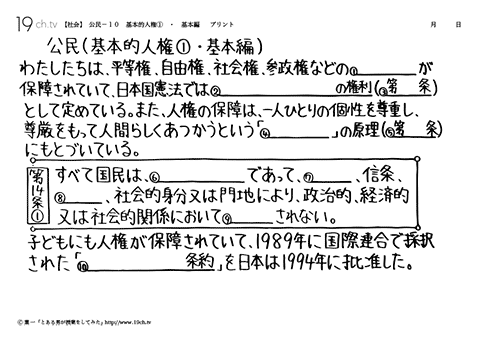 19ch.tv 【社会】 公民－１０ 基本的人権① ・ 基本編 プリント 月 日
公民(基本的人権①・基本編)
わたしたちは、平等権、自由権、社会権、参政権などの① が
保障されていて、日本国憲法では② の権利(③第 条)
として定めている。また、人権の保障は、一人ひとりの個性を尊重し、
尊厳をもって人間らしくあつかうという「④ 」の原理(⑤第 条)
にもとづいている。
第14条① すべて国民は、⑥ であって、⑦ 、信条、
⑧ 、社会的身分又は門地により、政治的、経済的
又は社会的関係において⑨ されない。
子どもにも人権が保障されていて、1989年に国際連合で採択
された「⑩ 条約」を日本は1994年に批准した。
© 葉一 「とある男が授業をしてみた」 http://www.19ch.tv